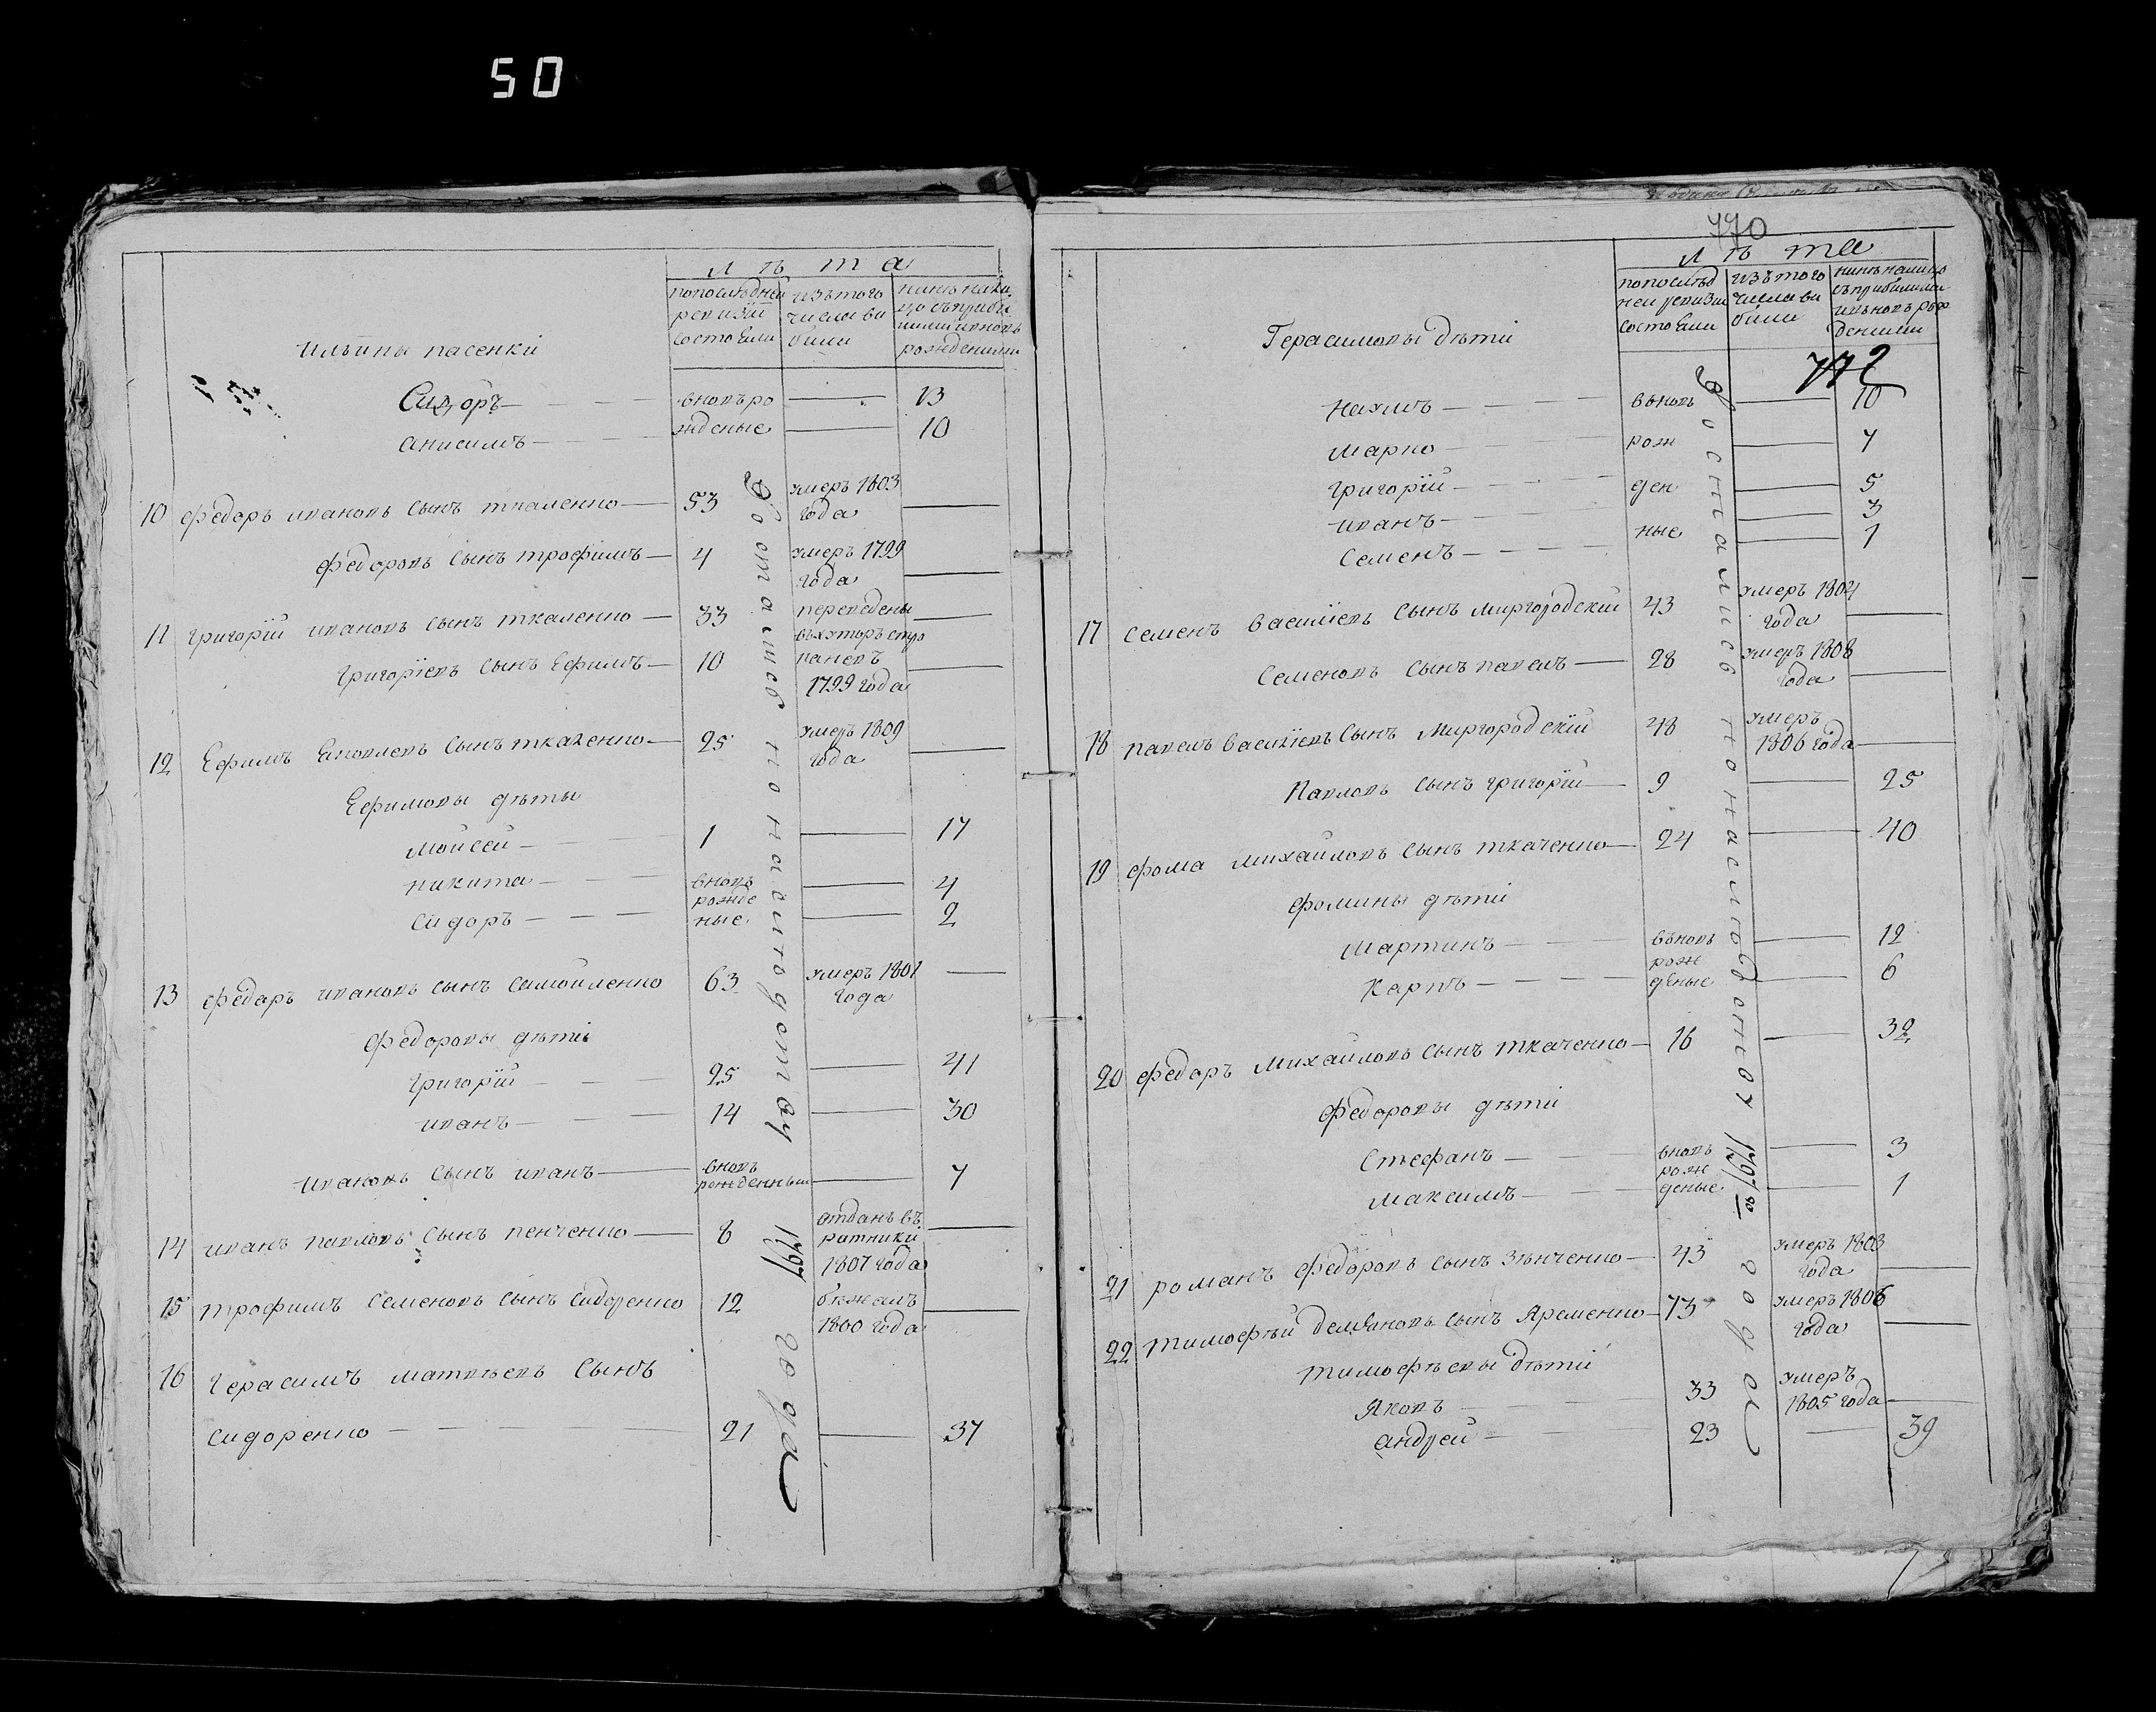 50
лѣта
попоследней ревизіи состояли
изътого числа выбыли
нынѣ налицо съприбылыми ивновь рожденными
Ильины пасенки
Сидоръ — вновь ро — 13
анисимъ — жденые — 10
10 федоръ ивановъ сынъ ткаченко — 53 умеръ 1803 года —
федоровъ сынъ трофимъ — 4 умеръ 1799 года —
11 григорїй ивановъ сынъ ткаченко — 33 переведены —
григорїевъ сынъ Ефимъ — 10 1799 года —
12 Ефимъ Яковлевъ сынъ ткаченко — 25 умеръ 1809 года —
Ефимовы дѣты
мойсей — 1 — 17
никита — вновь рожде — 4
сидоръ — ные — 2
13 федоръ ивановъ сынъ самойленко 63 умеръ 1801 года —
федоровы дѣти
григорїй — 25 — 41
иванъ — 14 — 30
ивановъ сынъ иванъ — вновь рожденный — 7
14 иванъ павловъ сынъ пенченко — 8 отданъ въ ратники 1807 года —
15 трофимъ семеновъ сынъ сидоренко 12 бежалъ 1800 года —
16 герасимъ матвѣевъ сынъ
сидоренко — 21 — 37
1797 года
770
лѣта
попослѣд ней ревизіи состояли
изътого числа вы были
нынѣ налицо съприбылыми ивновь рож дениими
772
Герасимовы дѣти
наумъ — вновь — 10
марко — рож — 7
григорїй — ден — 5
иванъ — 3
семенъ — ные — 1
17 семенъ василїевъ сынъ миргородскїй 43 умеръ 1804 года —
семеновъ сынъ павелъ — 28 умеръ 1808 года —
18 павелъ василїевъ сынъ миргородскїй 48 умеръ 1806 года —
Павловъ сынъ григорїй — 9 — 25
19 фома михайловъ сынъ ткаченко — 24 — 40
фомины дѣти
мартинъ — вновь рож — 12
карпъ — деные — 6
20 федоръ михайловъ сынъ ткаченко — 16 — 32
федоровы дѣти
стефанъ — вновь рож — 3
максимъ — деные — 1
21 романъ федоровъ сынъ зѣнченко — 43 умеръ 1803 года —
22 тимофѣй демяновъ сынъ Яременко — 73 умеръ 1806 года —
тимофѣевы дѣти
Яковъ — 33 умеръ 1805 года —
андрей — 23 — 39
1797го года